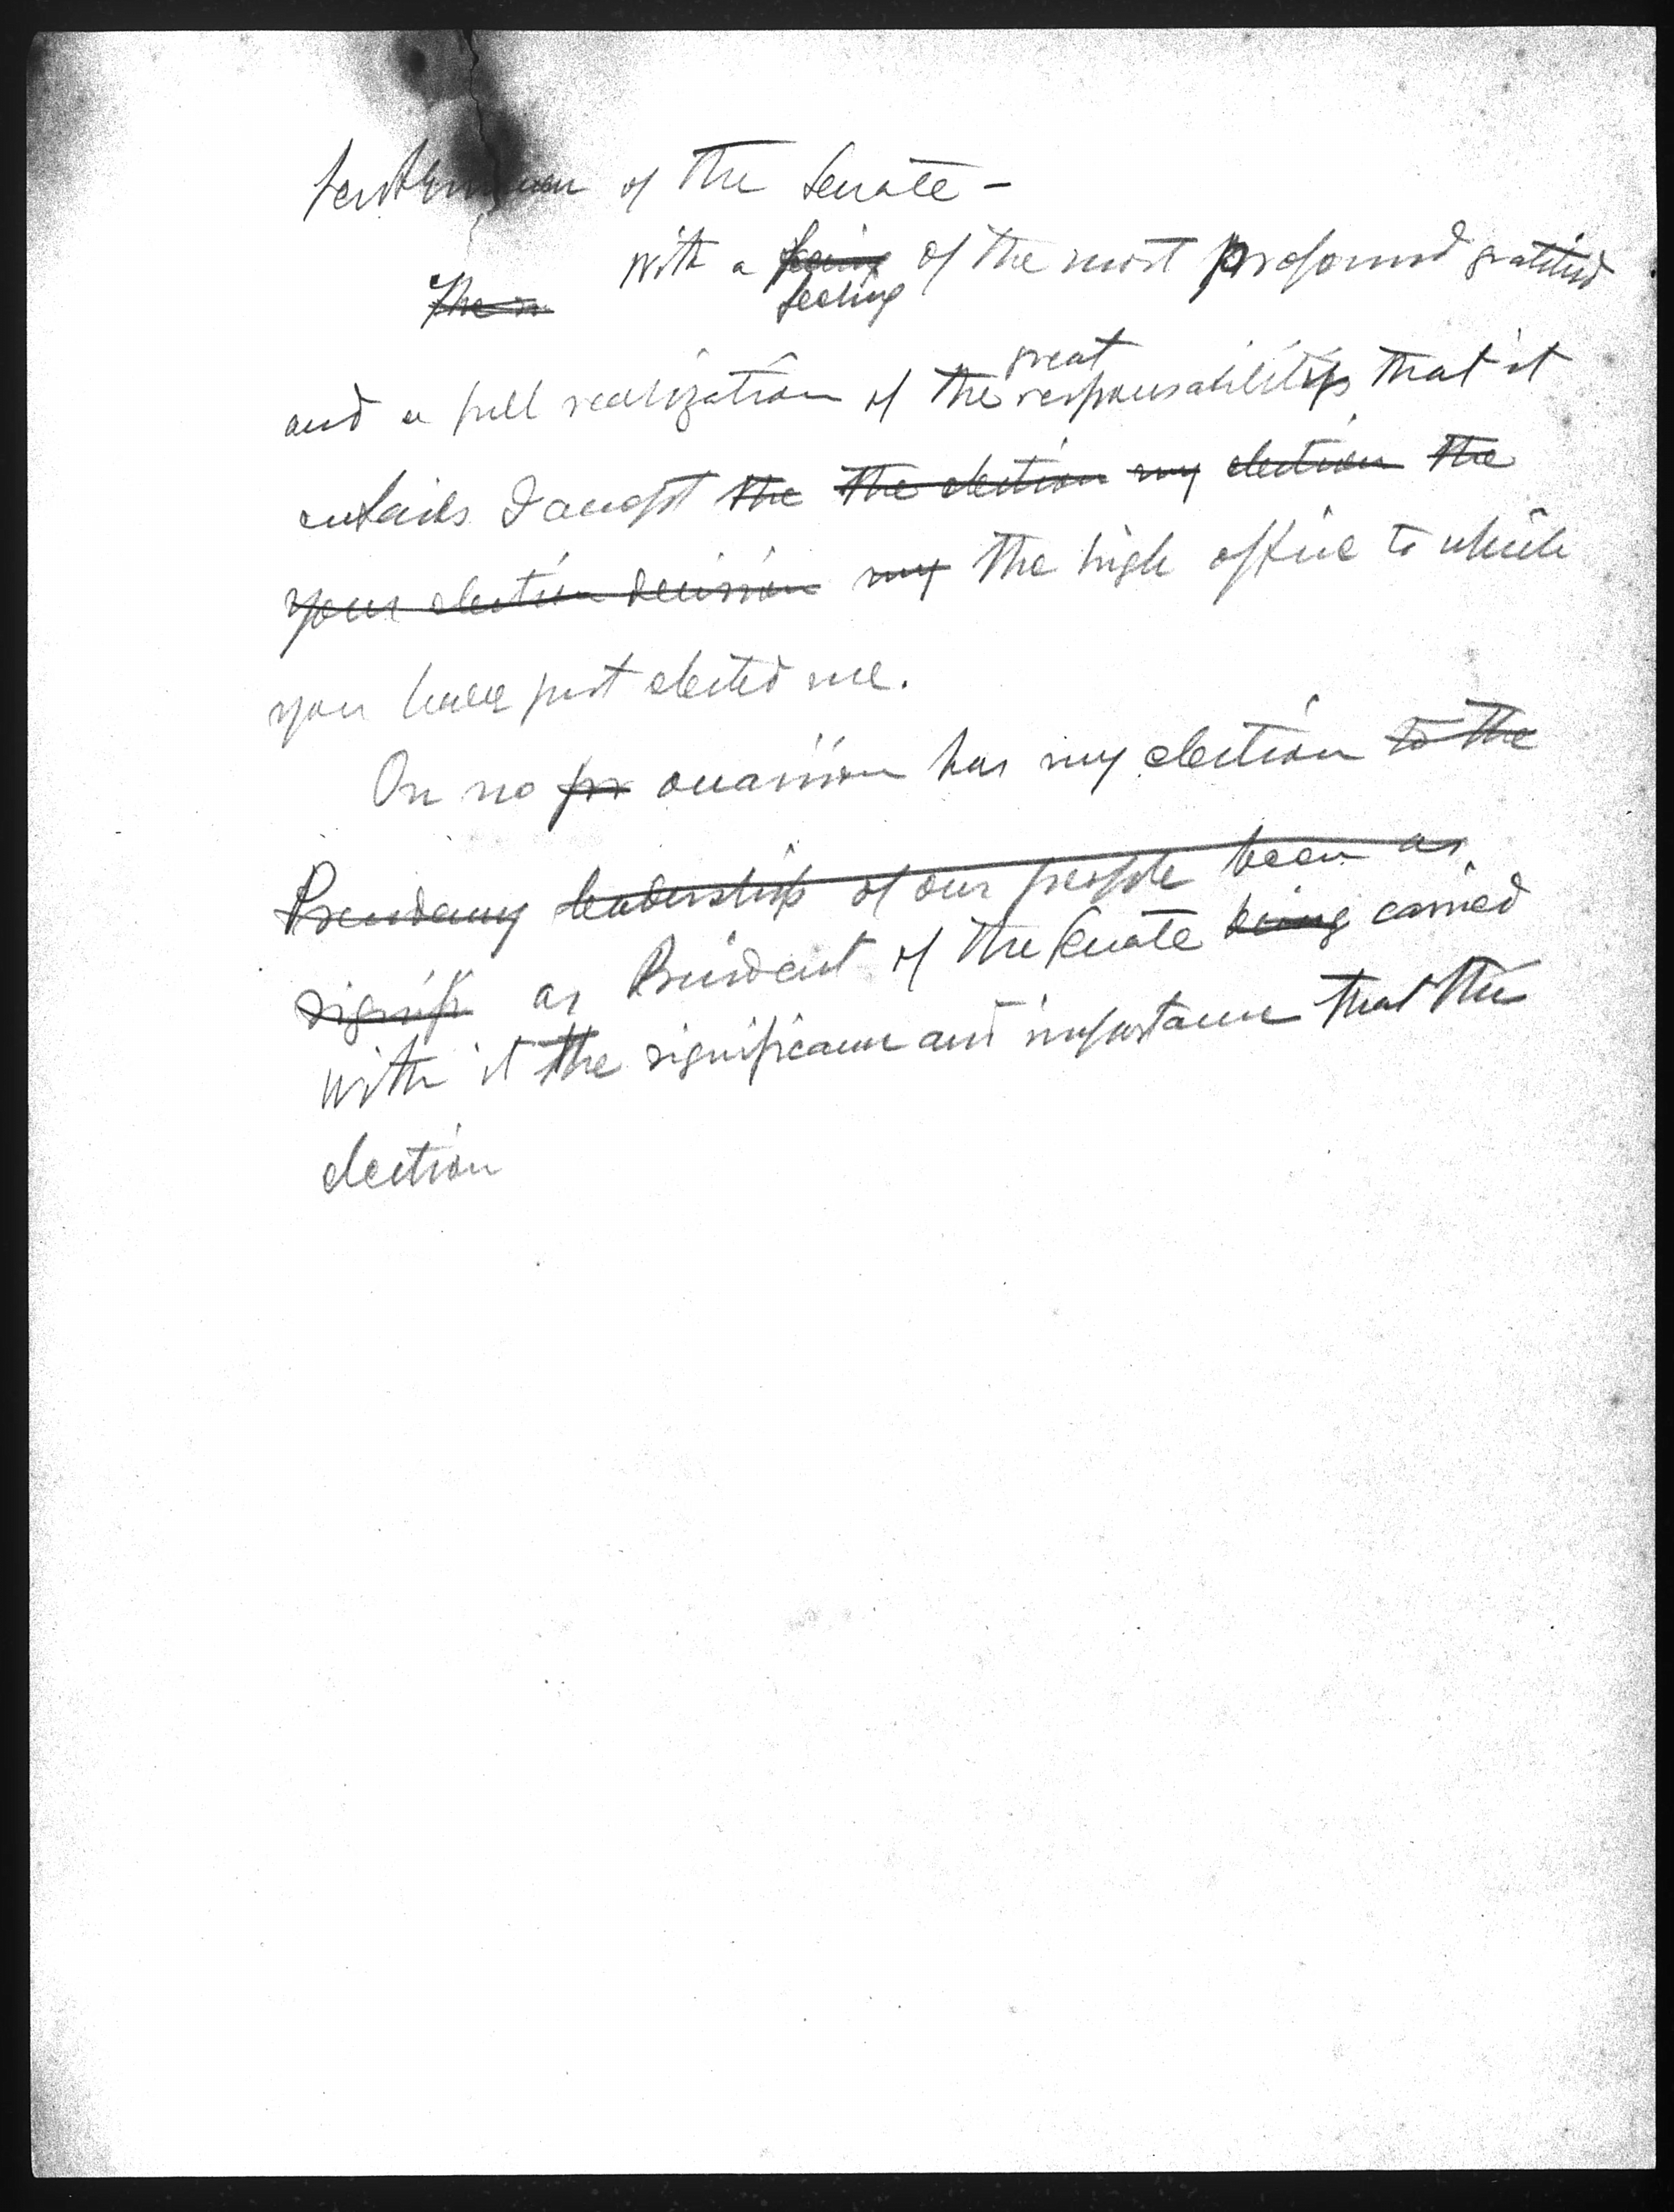 Gentlemen of the Senate -
With a feeling of the most profound gratitud
feeling
The
great
and a full realization of the responsability that it
entails I accept the the election my election the
your election decision my the high office to which
you have just elected me.
On no occasion has my election to the
Presidency leadership of our people been as
signifi as President of the Senate being carried
with it the significance and importance that the
election